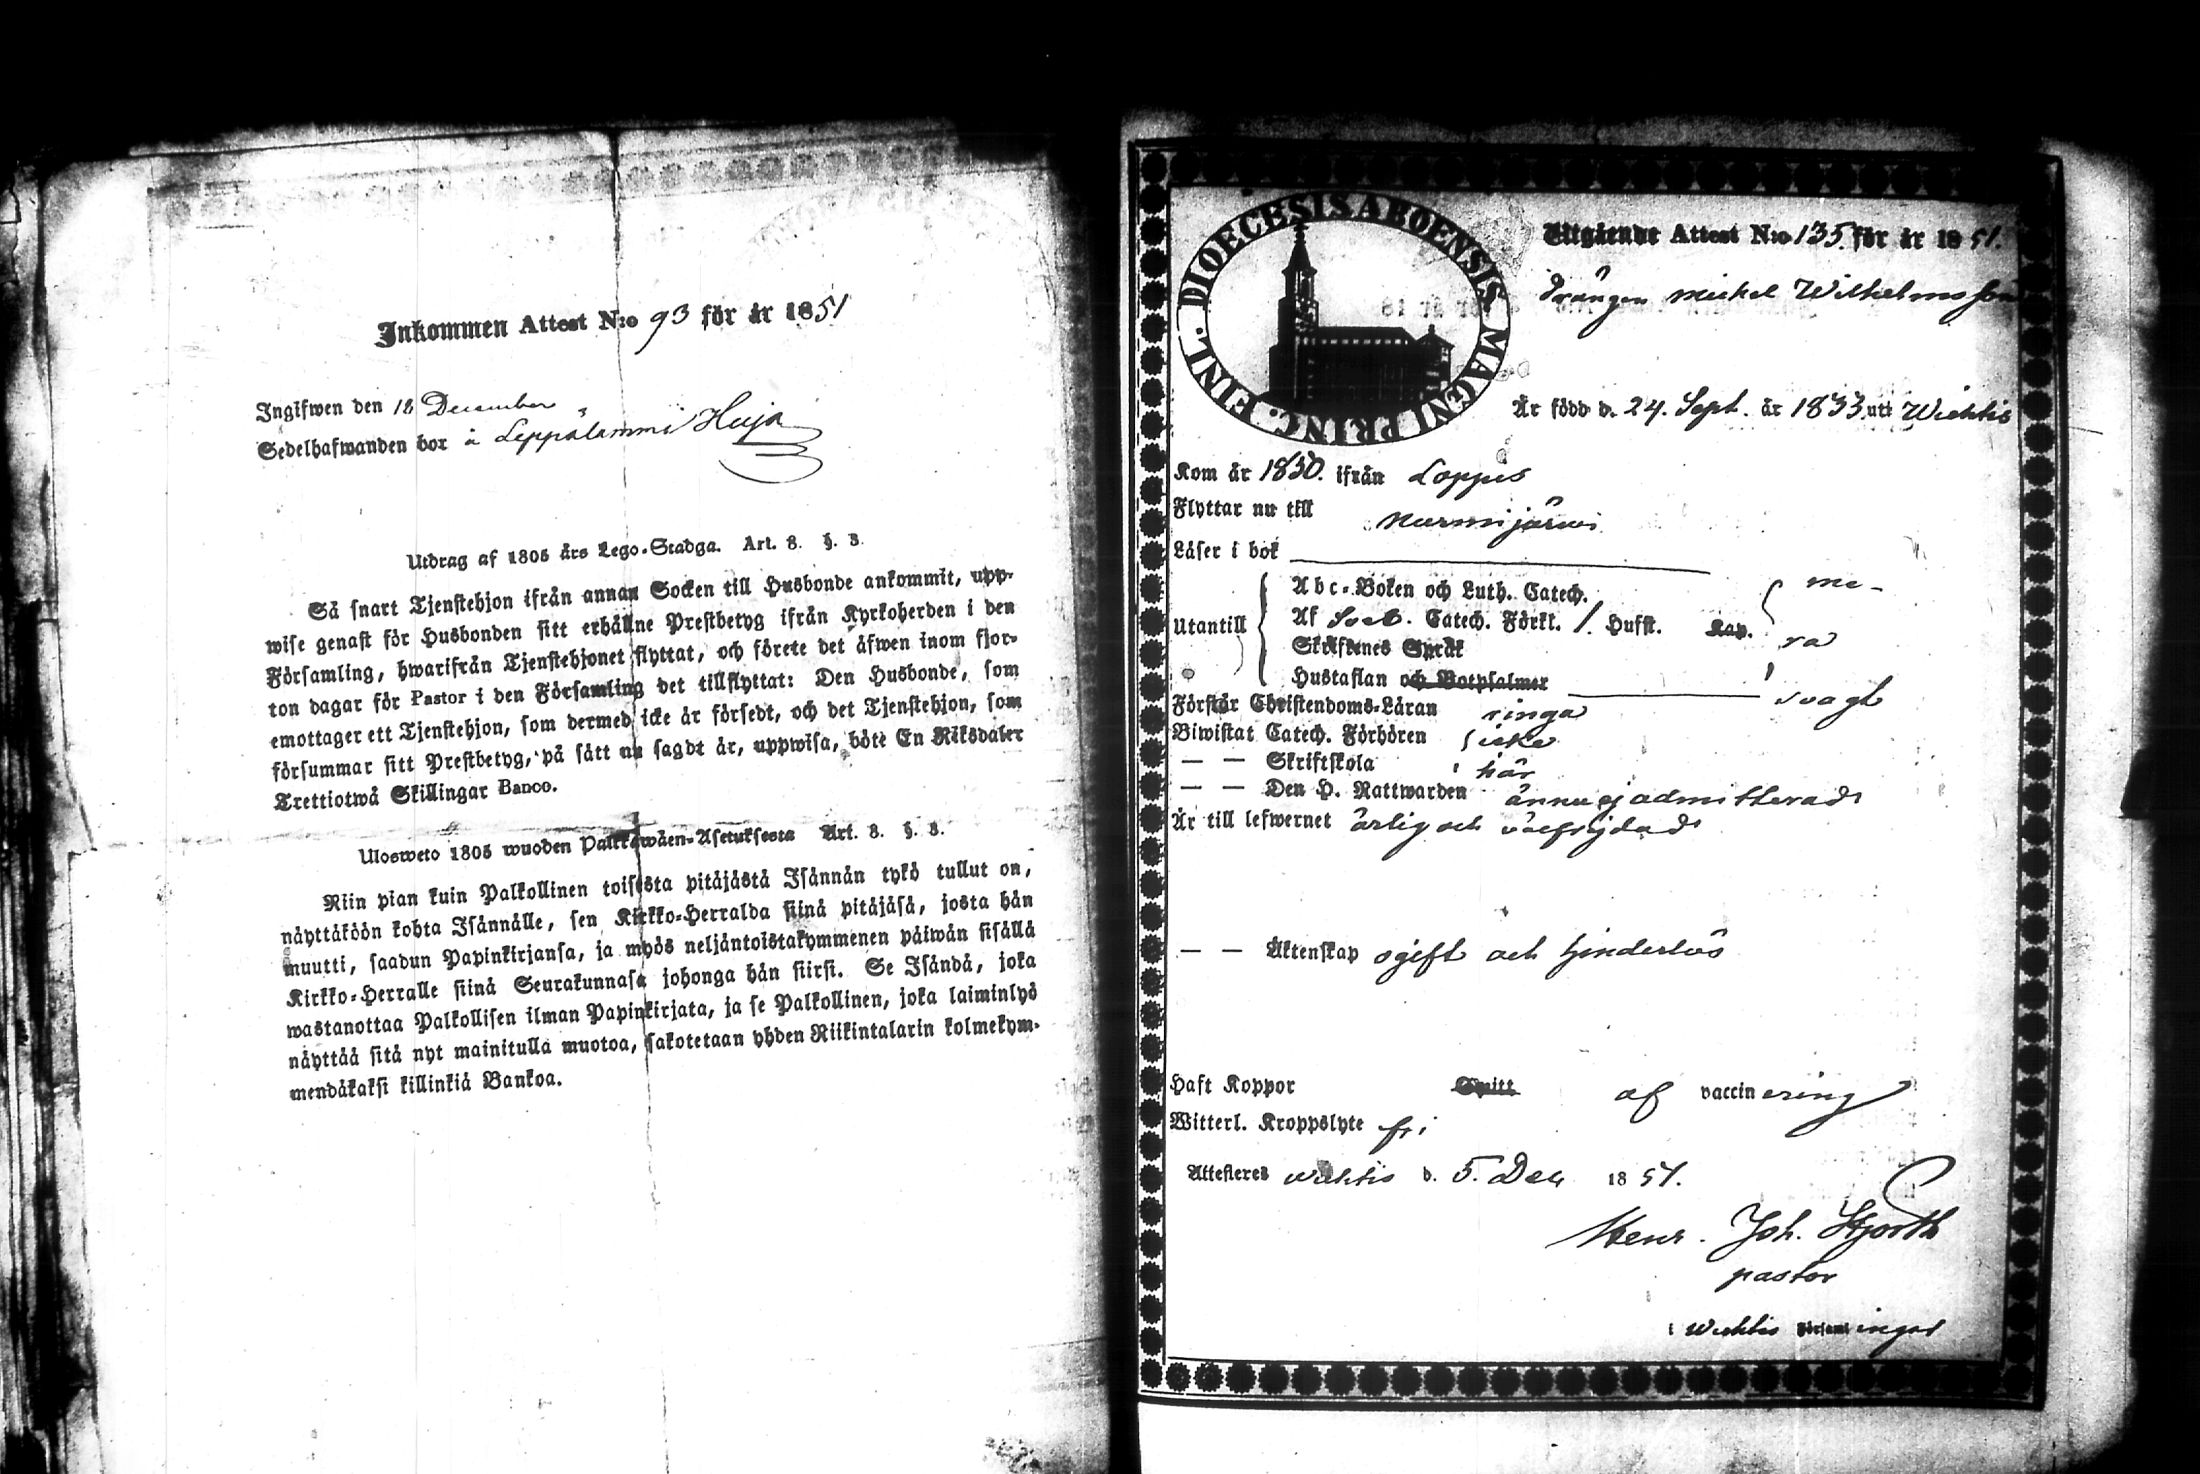 Inkommen Attest N:o 93 för år 1851
Ingifwen den 18 December
Sedelhafwanden bor å Leppälammi Huja
Utdrag af 1805 års Lego-Stadga. Art. 8. §. 3.
Så snart Tjenstehjon ifrån annan Socken till Husbonde ankommit, upp-
wise genast för Husbonden sitt erhållne Prestbetyg ifrån Kyrkoherden i den
Församling, hwarifrån Tjenstehjonet flyttat, och förete det äfwen inom fjor-
ton dagar för Pastor i den Församling det tillflyttat: Den Husbonde, som
emottager ett Tjenstehjon, som dermed icke är försedt, och det Tjenstehjon, som
försummar sitt Prestbetyg, på sätt nu sagdt är, uppwisa, böte En Riksdaler
Trettiotwå Skillingar Banco.
Ulosweto 1805 wuoden Palkkawäen-Asetuksesta Art. 8. §. 3.
Niin pian kuin Palkollinen toisesta pitäjästä Isännän tykö tullut on,
näyttäköön kohta Isännälle, sen Kirkko-Herralda siinä pitäjäsä, josta hän
muutti, saadun Papinkirjansa, ja myös neljäntoistakymmenen päiwän sisällä
Kirkko-Herralle siinä Seurakunnasa johonga hän siirsi. Se Isändä, joka
wastanottaa Palkollisen ilman Papinkirjata, ja se Palkollinen, joka laiminlyö
näyttää sitä nyt mainitulla muotoa, sakotetaan yhden Riikintalarin kolmekym-
mendäkaksi killinkiä Bankoa.
DIOECESIS ABOENSIS MAGNI PRINC. FINL.
Utgående Attest N:o 135 för år 1851.
Drängen Michel Wilhelmsson
Är född d. 24. Sept. år 1833 uti Wichtis
Kom år 1850. ifrån Loppis
Flyttar nu till Nurmijärwi
Läser i bok
Utantill
Abc-Boken och Luth. Catech.
Af Sveb. Catech. Förkl. 1. Hufst. Kap.
Skriftenes Språk
Hustaflan och Botpsalmer
me-
ra
svagt
Förstår Christendoms-Läran ringa
Biwistat Catech. Förhören icke
— — Skriftskola här
— — Den H. Nattwarden ännu ej admitterad
Är till lefwernet ärlig och välfrejdad
— — Äktenskap ogift och hinderlös
Haft Koppor Smitt af vaccinering
Witterl. Kroppslyte fri
Attesteres Wichtis d. 5. Dec 1851.
Henr. Joh. Hjorth
pastor
i Wichtis Församlingar